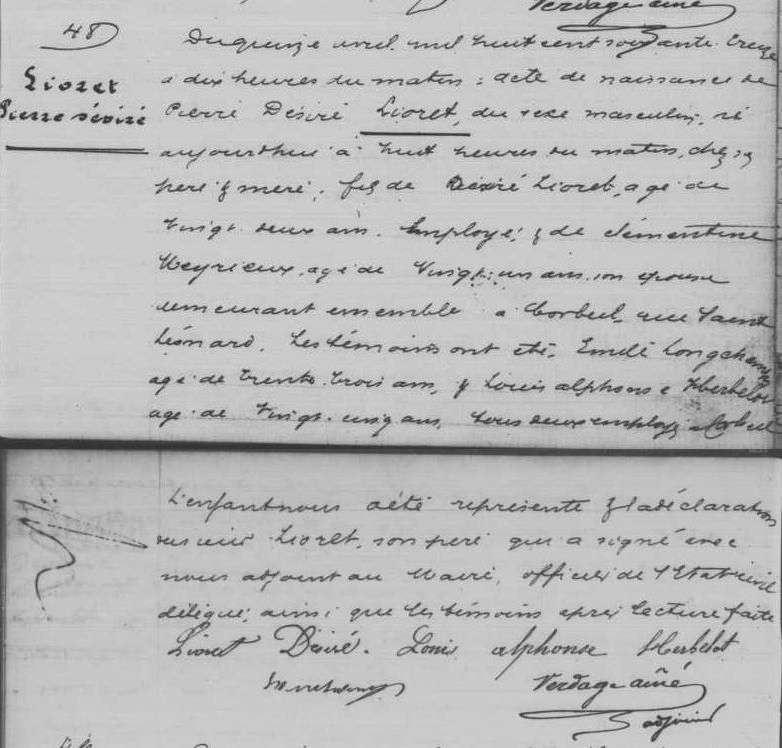 Verdage ainé
48
Lioret
Pierre Désiré
Du quinze avril mil huit cent soixante treize
a dix heures du matin : acte de naissance de
Pierre Désiré Lioret, du sexe masculin, né
aujourdhui a huit heures du matin, chez ses
pere & mere, fils de Désiré Lioret, agé de
vingt deux ans. Employé, & de Clémentine
Meyrieux, agé de vingt un ans, son epouse
demeurant ensemble a Corbeil, rue Saint
Léonard. Les témoins ont eté, Emile Longchamp
agé de trente trois ans, & Louis alphonse Herbelot
agé de vingt cinq ans, tous deux employés a Corbeil
L'enfant nous a été représenté & la déclaration
du sieur Lioret, son pere qui a signé avec
nous adjoint au Maire, officier de l'Etat civil
délégué, ainsi que les témoins apres lecture faite
Lioret Désiré. Louis alphonse Herbelot
Verdage ainé
adjoint